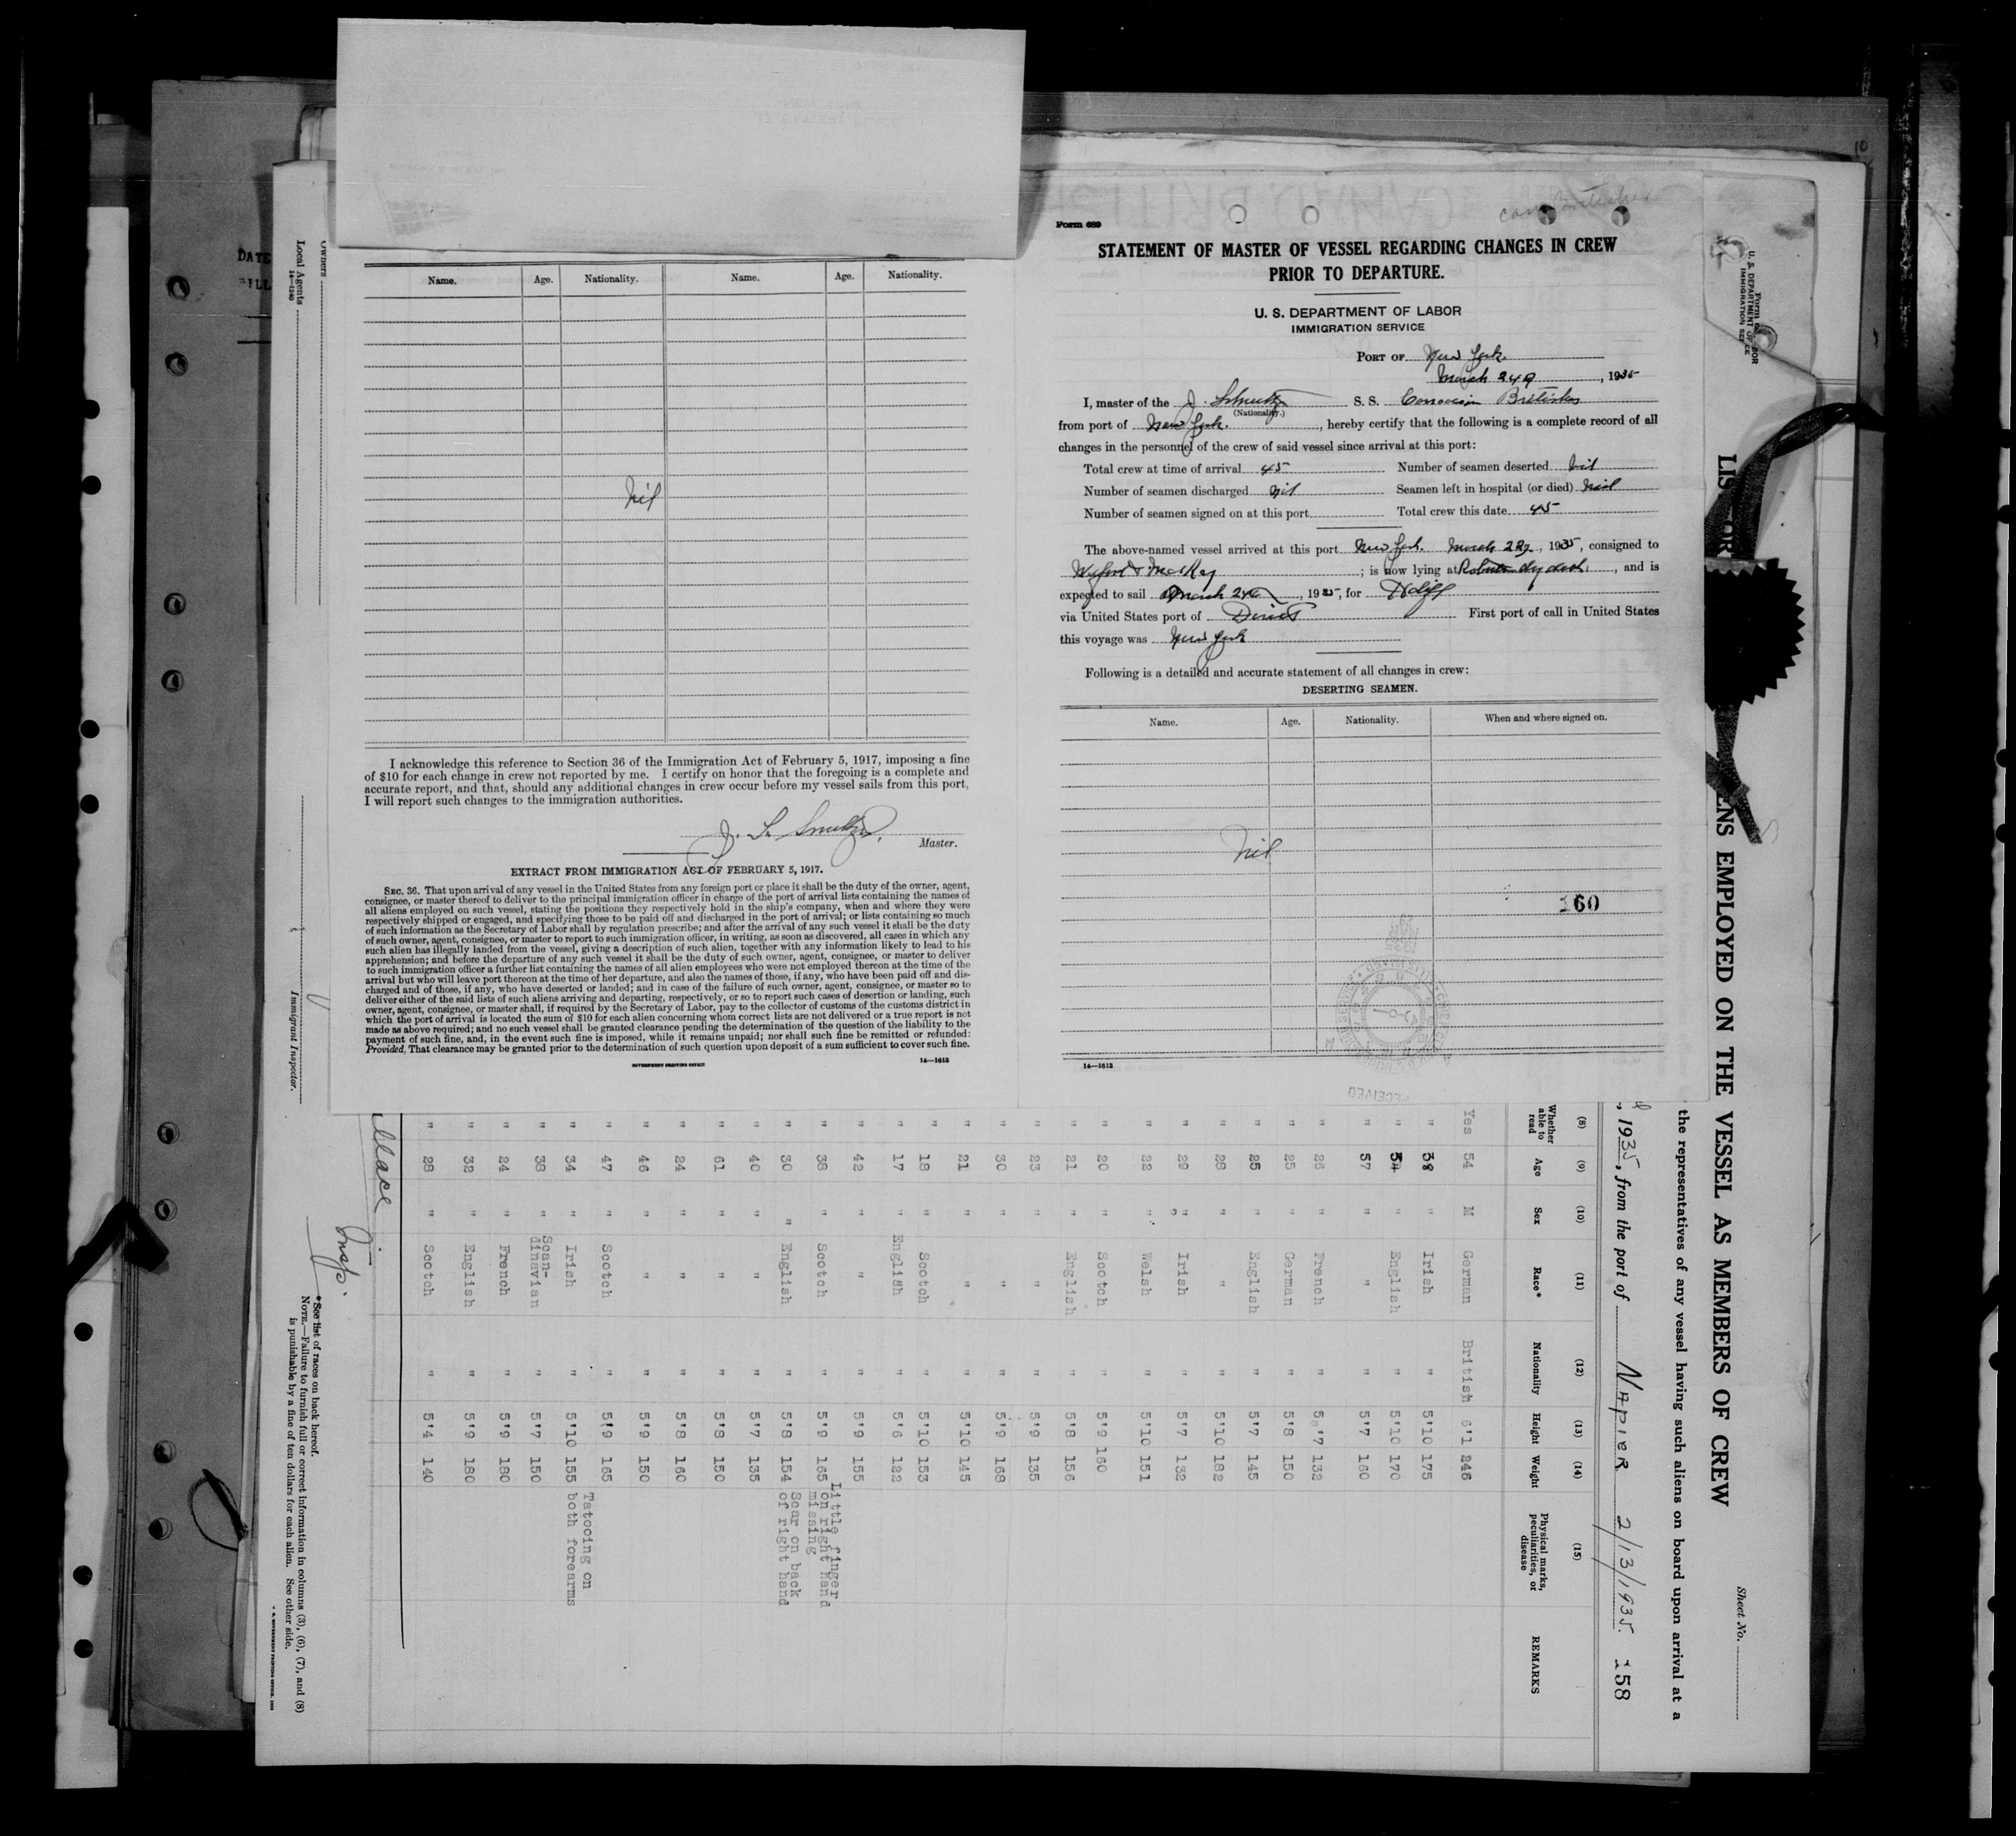 Form 689
STATEMENT OF MASTER OF VESSEL REGARDING CHANGES IN CREW
PRIOR TO DEPARTURE.
U. S. DEPARTMENT OF LABOR
IMMIGRATION SERVICE
PORT OF New York
March 24, 1935
I, master of the J. S. S.
(Nationality.)
from port of New York, hereby certify that the following is a complete record of all
changes in the personnel of the crew of said vessel since arrival at this port:
Total crew at time of arrival 45 Number of seamen deserted Nil
Number of seamen discharged Nil Seamen left in hospital (or died)
Number of seamen signed on at this port Total crew this date 45
The above-named vessel arrived at this port New York March, 1935, consigned to
; is now lying at dry dock, and is
expected to sail March 24, 1935, for
via United States port of Direct First port of call in United States
this voyage was New York
Following is a detailed and accurate statement of all changes in crew:
DESERTING SEAMEN.
Name. Age. Nationality. When and where signed on.
Nil
60
14—1613
Name. Age. Nationality. Name. Age. Nationality.
Nil
I acknowledge this reference to Section 36 of the Immigration Act of February 5, 1917, imposing a fine
of $10 for each change in crew not reported by me. I certify on honor that the foregoing is a complete and
accurate report, and that, should any additional changes in crew occur before my vessel sails from this port,
I will report such changes to the immigration authorities.
J. S.
Master.
EXTRACT FROM IMMIGRATION ACT OF FEBRUARY 5, 1917.
SEC. 36. That upon arrival of any vessel in the United States from any foreign port or place it shall be the duty of the owner, agent,
consignee, or master thereof to deliver to the principal immigration officer in charge of the port of arrival lists containing the names of
all aliens employed on such vessel, stating the positions they respectively hold in the ship's company, when and where they were
respectively shipped or engaged, and specifying those to be paid off and discharged in the port of arrival; or lists containing so much
of such information as the Secretary of Labor shall by regulation prescribe; and after the arrival of any such vessel it shall be the duty
of such owner, agent, consignee, or master to report to such immigration officer, in writing, as soon as discovered, all cases in which any
such alien has illegally landed from the vessel, giving a description of such alien, together with any information likely to lead to his
apprehension; and before the departure of any such vessel it shall be the duty of such owner, agent, consignee, or master to deliver
to such immigration officer a further list containing the names of all alien employees who were not employed thereon at the time of the
arrival but who will leave port thereon at the time of her departure, and also the names of those, if any, who have been paid off and dis-
charged and of those, if any, who have deserted or landed; and in case of the failure of such owner, agent, consignee, or master so to
deliver either of the said lists of such aliens arriving and departing, respectively, or so to report such cases of desertion or landing, such
owner, agent, consignee, or master shall, if required by the Secretary of Labor, pay to the collector of customs of the customs district in
which the port of arrival is located the sum of $10 for each alien concerning whom correct lists are not delivered or a true report is not
made as above required; and no such vessel shall be granted clearance pending the determination of the question of the liability to the
payment of such fine, and, in the event such fine is imposed, while it remains unpaid; nor shall such fine be remitted or refunded:
Provided, That clearance may be granted prior to the determination of such question upon deposit of a sum sufficient to cover such fine.
GOVERNMENT PRINTING OFFICE 14—1613
Sheet No.
ENS EMPLOYED ON THE VESSEL AS MEMBERS OF CREW
the representatives of any vessel having such aliens on board upon arrival at a
, 1935, from the port of NAPIER 2/13/1935 158
(8) (9) (10) (11) (12) (13) (14) (15)
Whether able to read Age Sex Race* Nationality Height Weight Physical marks, peculiarities, or disease REMARKS
Yes 54 M German British 6'1 246
" 38 " Irish " 5'10 175
" 34 " English " 5'10 170
" 57 " " " 5'7 160
" 26 " French " 5'7 132
" 25 " German " 5'8 150
" 25 " English " 5'7 145
" 28 " " " 5'10 182
" 29 " Irish " 5'7 132
" 22 " Welsh " 5'10 151
" 20 " Scotch " 5'9 160
" 21 " English " 5'8 156
" 23 " " " 5'9 135
" 30 " " " 5'9 168
" 21 " " " 5'10 145
" 18 " Scotch " 5'10 153
" 17 " English " 5'6 122
" 42 " " " 5'9 155
" 38 " Scotch " 5'9 165 Little finger on right hand missing
" 30 " English " 5'8 154 Scar on back of right hand
" 40 " " " 5'7 135
" 61 " " " 5'8 150
" 24 " " " 5'8 160
" 46 " " " 5'9 150
" 47 " Scotch " 5'9 165
" 34 " Irish " 5'10 155 Tatooing on both forearms
" 38 " Scandinavian " 5'7 150
" 24 " French " 5'9 180
" 32 " English " 5'9 180
" 28 " Scotch " 5'4 140
Insp.
*See list of races on back hereof.
NOTE.—Failure to furnish full or correct information in columns (3), (6), (7), and (8)
is punishable by a fine of ten dollars for each alien. See other side.
Owners
Local Agents
14—1240
Immigrant Inspector.